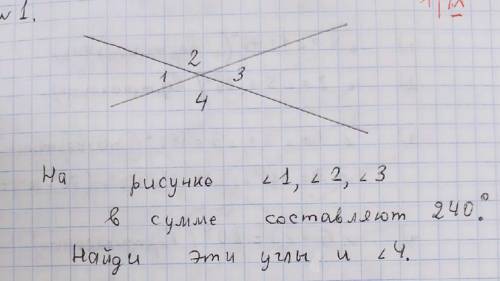 №1.
2
1 3
4
На рисунке ∠1, ∠2, ∠3
в сумме составляют 240°.
Найди эти углы и ∠4.